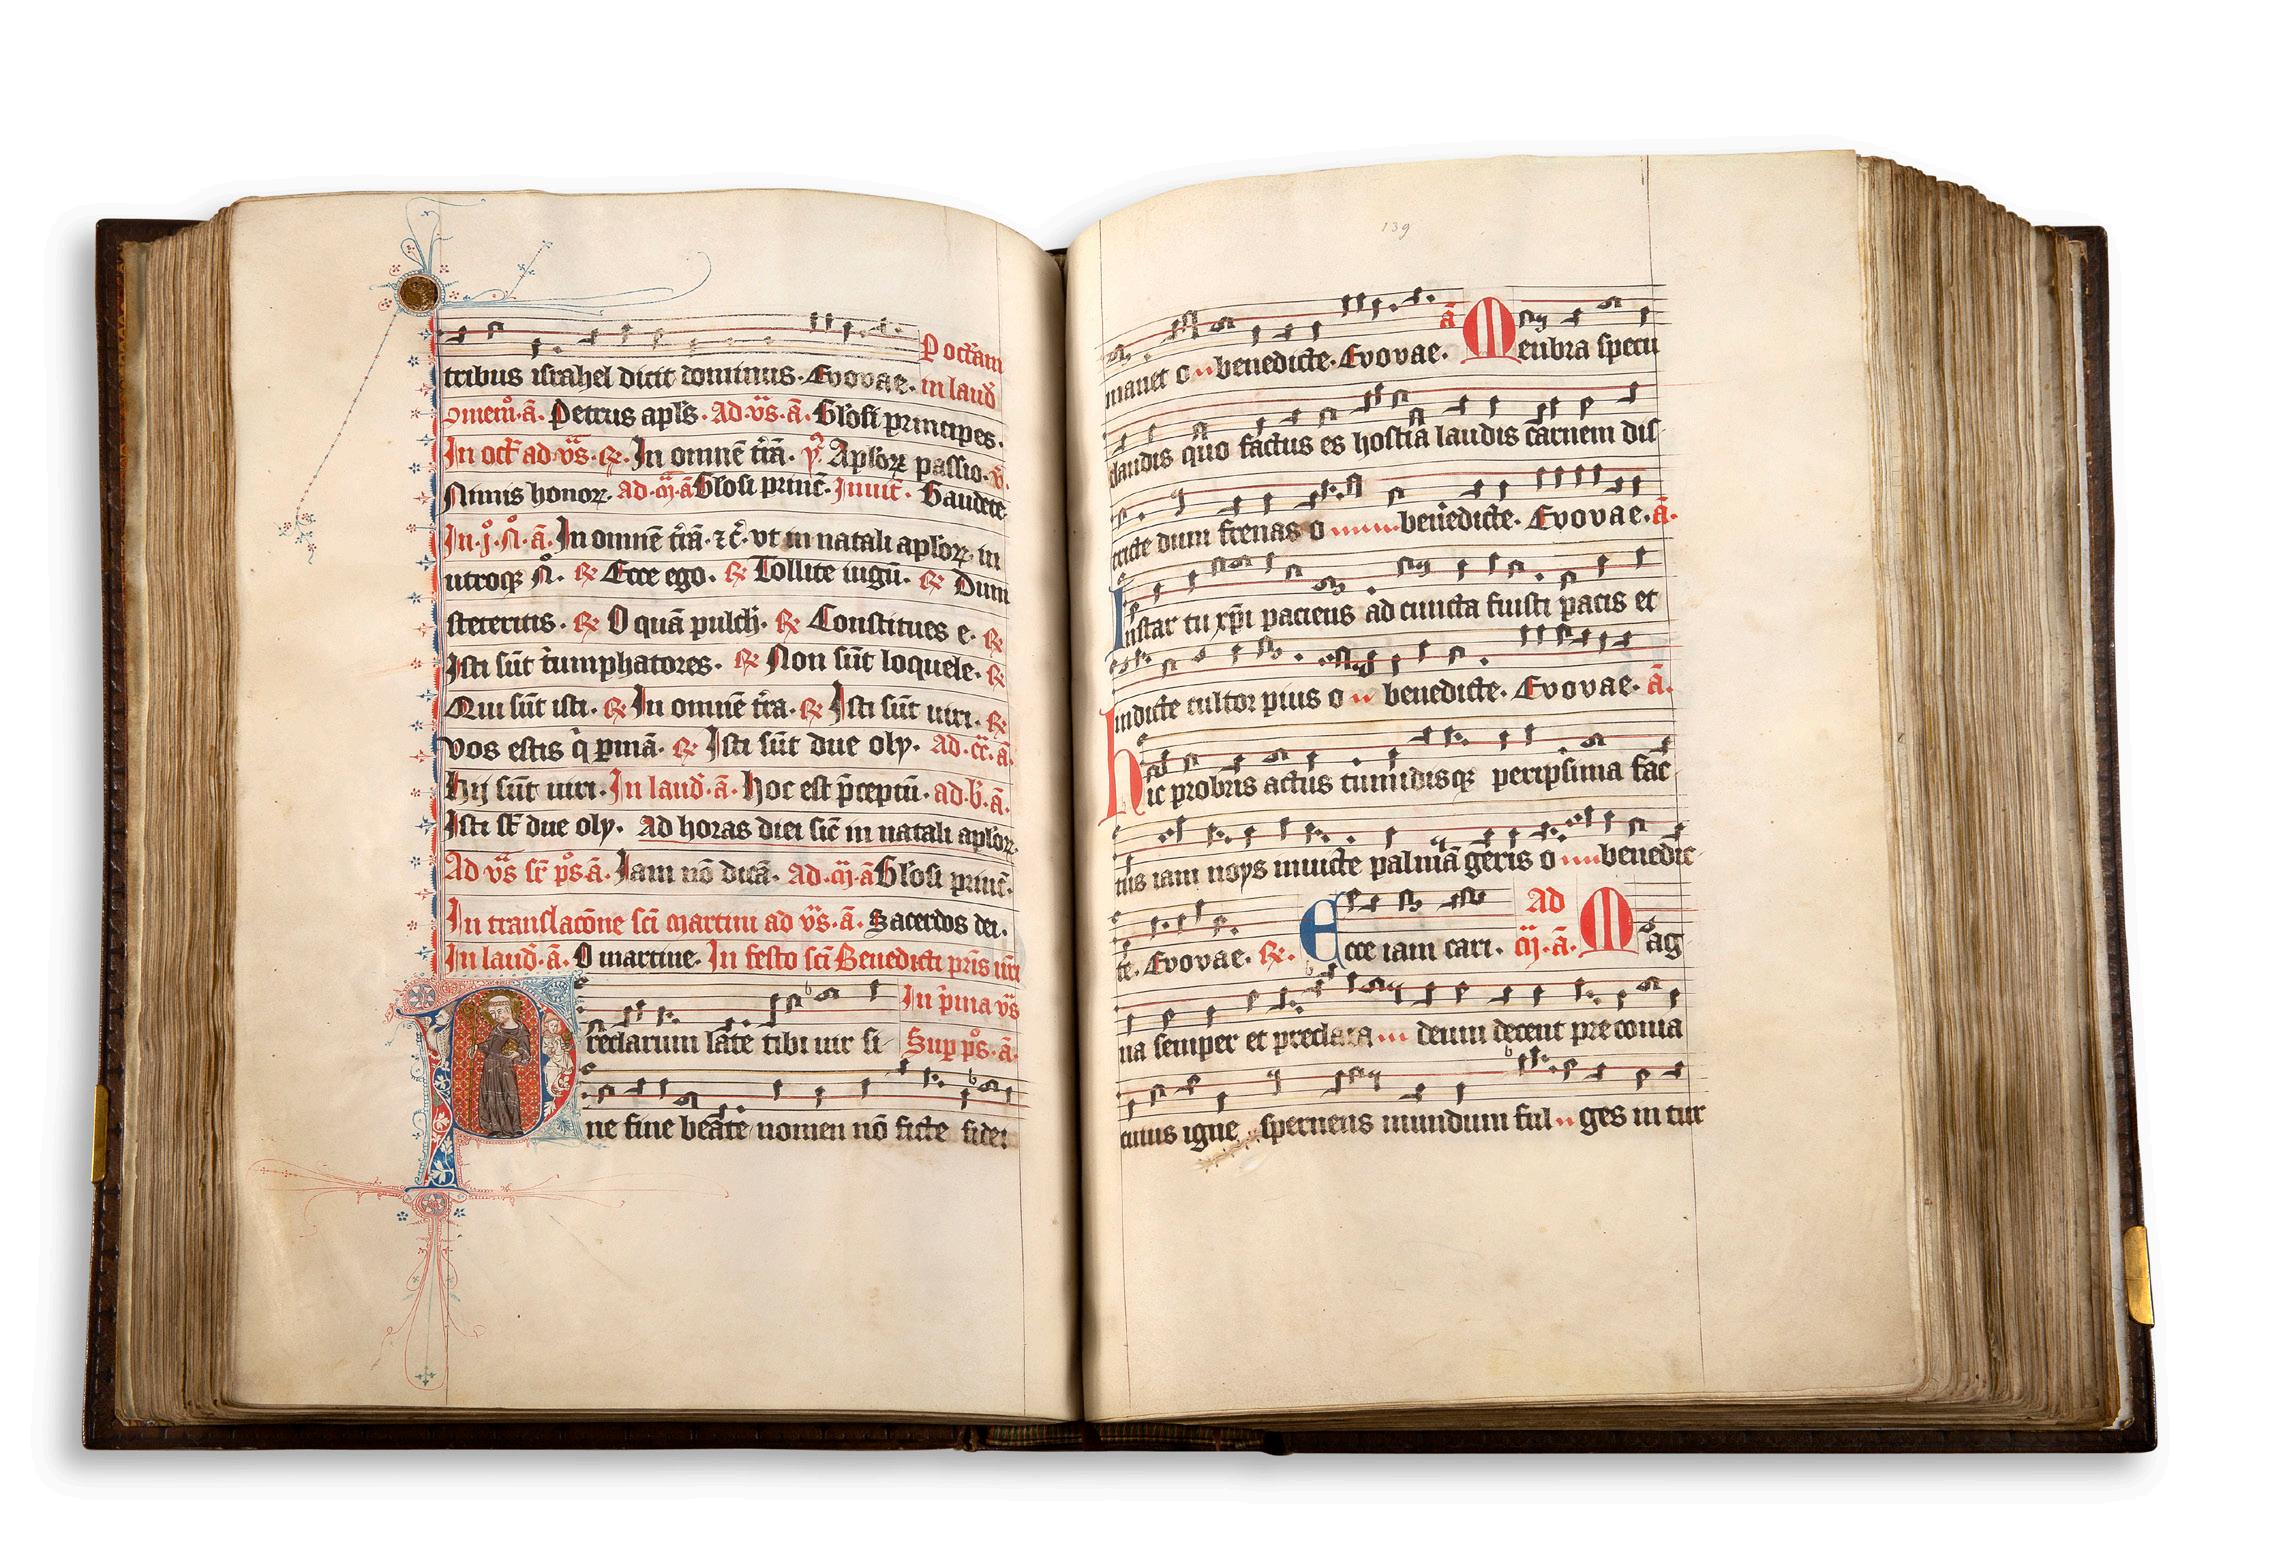 P octāam
tribus israhel dicit dominus. Evovae. in laud̄
ōmem̊. ā. Petrus apl̄s. Ad v̄s. ā. Gl̄osi principes.
In oct̄ ad v̄s. ℟. In omnē t̄rā. p̊. Apl̄oꝝ passio. v̄.
Nimis honoꝝ. ad. m̄. ā Gl̄osi princ̄. Inuit̄. Gaudete
In. j̊. n̊. ā. In omnē t̄rā. ⁊c̄. vt in natali apl̄oꝝ. in
utroqꝫ n̊. ℟ Ecce ego. ℟ Tollite iugū. ℟ Dum
steteritis. ℟ O quā pulch̄. ℟ Constitues e. ℟
Isti sūt t̄umphatores. ℟ Non sūt loquele. ℟
Qui sūt isti. ℟ In omnē t̄ra. ℟ Isti sūt uiri. ℟
Vos estis q̄ pmā. ℟ Isti sūt due oly. Ad. cc̄. ā.
Hij sūt uiri. In laud̄. ā. Hoc est p̄ceptū. ad. b̄. ā.
Isti st̄ due oly. Ad horas diei sic̄ in natali apl̄oꝝ.
Ad v̄s sc̄ p̊s. ā. Iam nō dicā. Ad. m̄. ā Gl̄osi princ̄.
In translacōne sc̄i martini ad v̄s. ā. Sacerdos dei.
In laud̄. ā. O martine. In festo sc̄i Benedicti pr̄is n̄ri
In p̄ma v̄s
Preclarum late tibi uir si Sup p̊s. ā.
ne fine beate nomen nō ficte fidei
139
manet o benedicte. Evovae. ā Menbra specu
claudis quo factus es hostia laudis carnem dis
tricte dum frenas o benedicte. Evovae. ā.
Instar tu xp̄i paciens ad cuncta fuisti pacis et
indicte cultor pius o benedicte. Evovae. ā.
Hic probris actus tumidisqꝫ peripsima fac
tus iam noys inuicte palmā geris o benedic
te. Evovae. ℟. Ecce iam cari. Ad m̄. ā. Mag
na semper et preclara deum decent preconia
cuius igne spernens mundum ful ges in tur